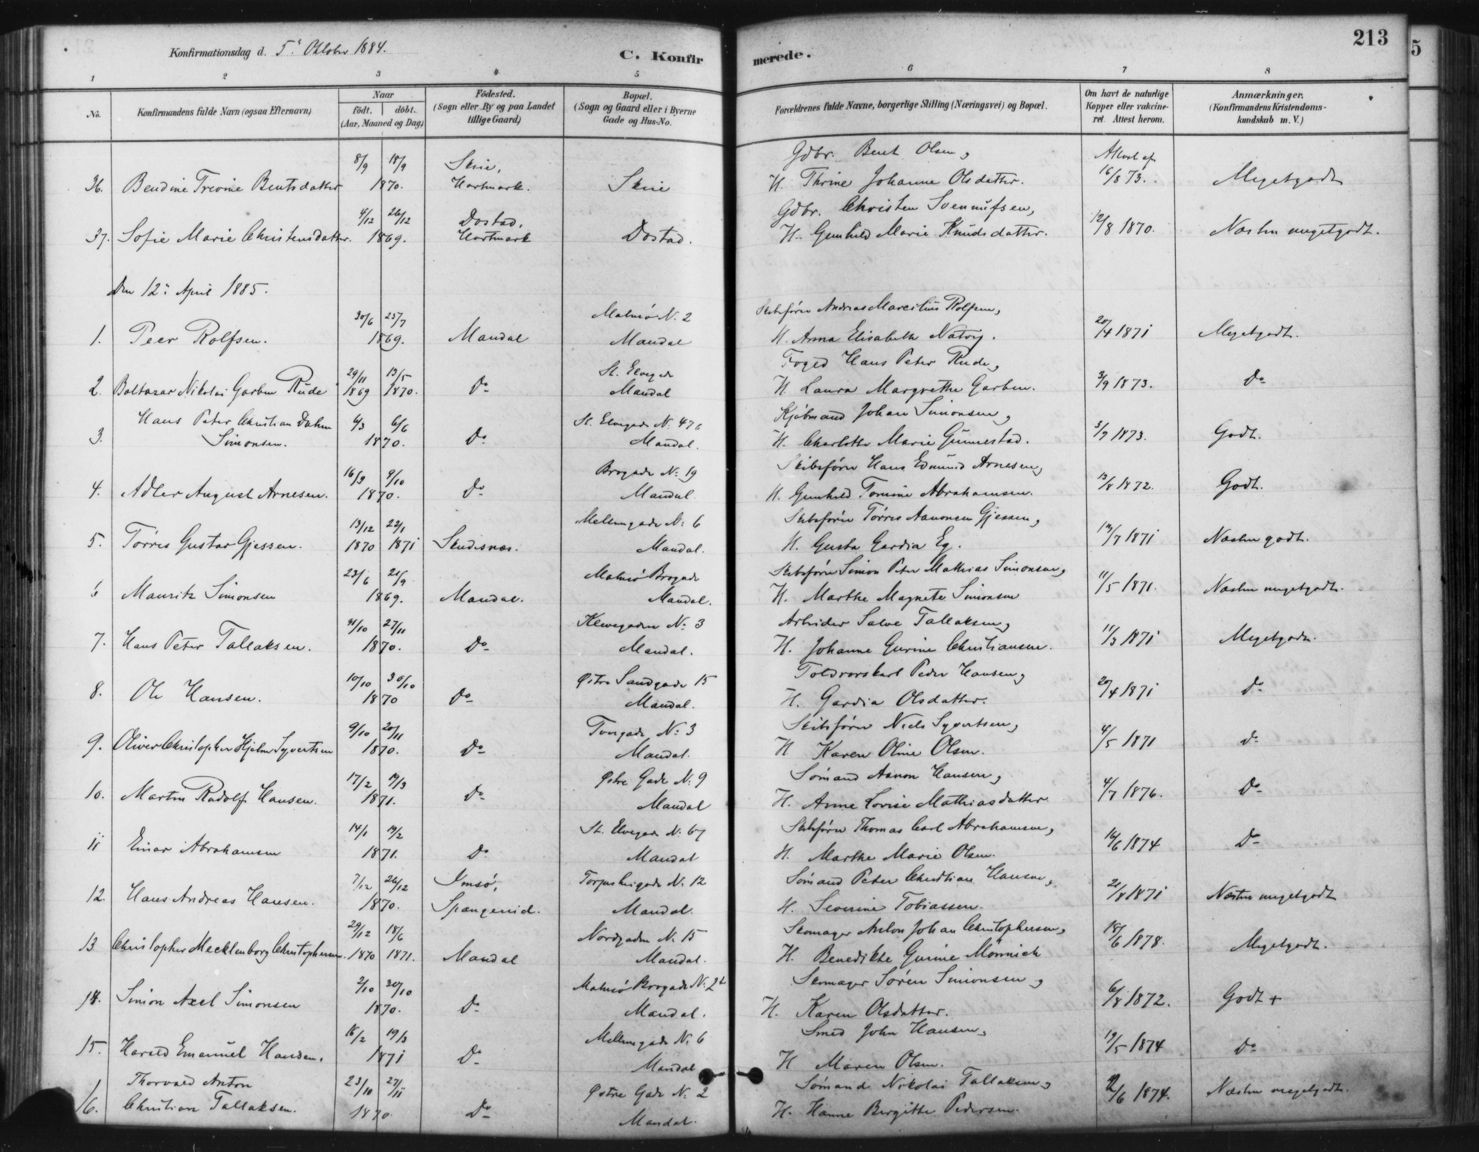 213
Konfirmationsdag d. 5te Oktober 1884.
C. Konfirmerede.
1 2 3 4 5 6 7 8
No. Konfirmandens fulde Navn (ogsaa Efternavn) Naar født. døbt. (Aar, Maaned og Dag) Fødested. (Sogn eller By og paa Landet tillige Gaard) Bopæl. (Sogn og Gaard eller i Byerne Gade og Hus-No. Forældrenes fulde Navne, borgerlige Stilling (Næringsvei) og Bopæl. Om havt de naturlige Kopper eller vakcineret. Attest herom. Anmærkninger. (Konfirmandens Kristendomskundskab m. V.)
8/9 18/9 Skeie, Gdbr. Bent Olsen, Attest af
36. Bendine Trevine Bentsdatter 1870. Hartmark. Skeie H. Thrine Johanne Olsdatter. 16/8 73. Megetgodt
4/12 26/12 Dostad, Gdbr. Christen Svennufsen,
37. Sofie Marie Christensdatter. 1869. Hartmark Dostad. H. Gunhild Marie Knudsdatter. 12/8 1870. Næsten megetgodt.
Den 12te April 1885.
30/6 25/7 Malmø N. 2 Skibsfører Andreas Marcelius Rolfsen,
1. Peer Rolfsen. 1869. Mandal Mandal H. Anna Elisabeth Natvig. 20/4 1871 Megetgodt.
29/11 13/5 St. Elvegade Foged Hans Peter Rude,
2. Baltazar Nikolai Garben Rude 1869 1870. Do Mandal H. Laura Margrethe Garben. 3/9 1873. Do
Hans Peter Christian Dahm 4/3 6/6 St. Elvegade N. 47 Kjøbmand Johan Simonsen,
3. Simonsen. 1870. Do Mandal. H. Charlotte Marie Gunnestad. 3/7 1873. Godt.
16/9 9/10 Brogade No 19 Skibsfører Hans Edmund Arnesen,
4. Adler August Arnesen. 1870. Do Mandal H. Gunhild Tomine Abrahamsen. 13/8 1872. Godt.
13/12 22/1 Mellemgade No 6 Skibsfører Tørres Aanonsen Gjessen,
5. Tørres Gustav Gjessen. 1870 1871 Skudisnæs. Mandal. H. Gusta Gardia Eg. 19/7 1871 Næsten godt.
23/6 21/9 Malmø Brogade Skibsfører Simon Peter Mathias Simonsen,
6 Mauritz Simonsen 1869. Mandal. Mandal. H. Marthe Magnete Simonsen 11/5 1871. Næsten megetgodt.
21/10 27/11 Klevegaden No 3 Arbeider Salve Tallaksen,
7. Hans Peter Tallaksen. 1870. Do Mandal. H. Johanne Gurine Christiansen. 11/3 1871 Megetgodt.
10/10 30/10 Østre Sandgade 15 Toldrorskarl Peder Hansen,
8. Ole Hansen. 1870 Do Mandal. H. Gardia Olsdatter. 20/4 1871 Do
9/10 20/11 Torvgade No 3 Skibsfører Niels Syvertsen,
9. Oliver Christopher Hjelm Syvertsen 1870. Do Mandal. H. Karen Oline Olsen. 4/5 1871 Do
17/2 19/3 Østre Gade N. 9 Sømand Aanon Hansen,
10. Martin Rudolf Hansen. 1871. Do Mandal H. Anne Lovise Mathiasdatter 4/7 1876. Do
14/1 19/2 St. Elvegade N. 67 Skibsfører Thomas Carl Abrahamsen,
11 Einar Abrahamsen 1871. Do Mandal H. Marthe Marie Olsen. 14/6 1874 Do
7/12 26/12 Imsø, N. 12 Sømand Peter Christian Hansen,
12. Hans Andreas Hansen. 1870. Spangereid. Mandal. H. Severine Tobiassen. 21/8 1871 Næsten megetgodt
29/12 18/6 Nordgaden N. 15 Skomager Anton Johan Christophersen,
13. Christopher Mecklenborg Christophersen 1870 1871. Mandal Mandal. H. Benedikte Gurine Mönnich 18/6 1878. Megetgodt.
2/10 30/10 Malmø Brogade N. 24 Skomager Søren Simonsen,
14. Simon Axel Simonsen 1870. Do Mandal. H. Karen Olsdatter. 6/8 1872. Godt +
16/2 19/3 Mellemgade N. 6 Smed John Hansen,
15. Harald Emanuel Hansen. 1871 Do Mandal H. Maren Olsen. 19/5 1874 Do
Thorvald Anton 23/10 27/11 Østre Gade N. 2 Sømand Nikolai Tallaksen,
16. Christian Tallaksen. 1870 Do Mandal. H. Hanne Birgitte Pedersen. /6 1874. Næsten megetgodt.